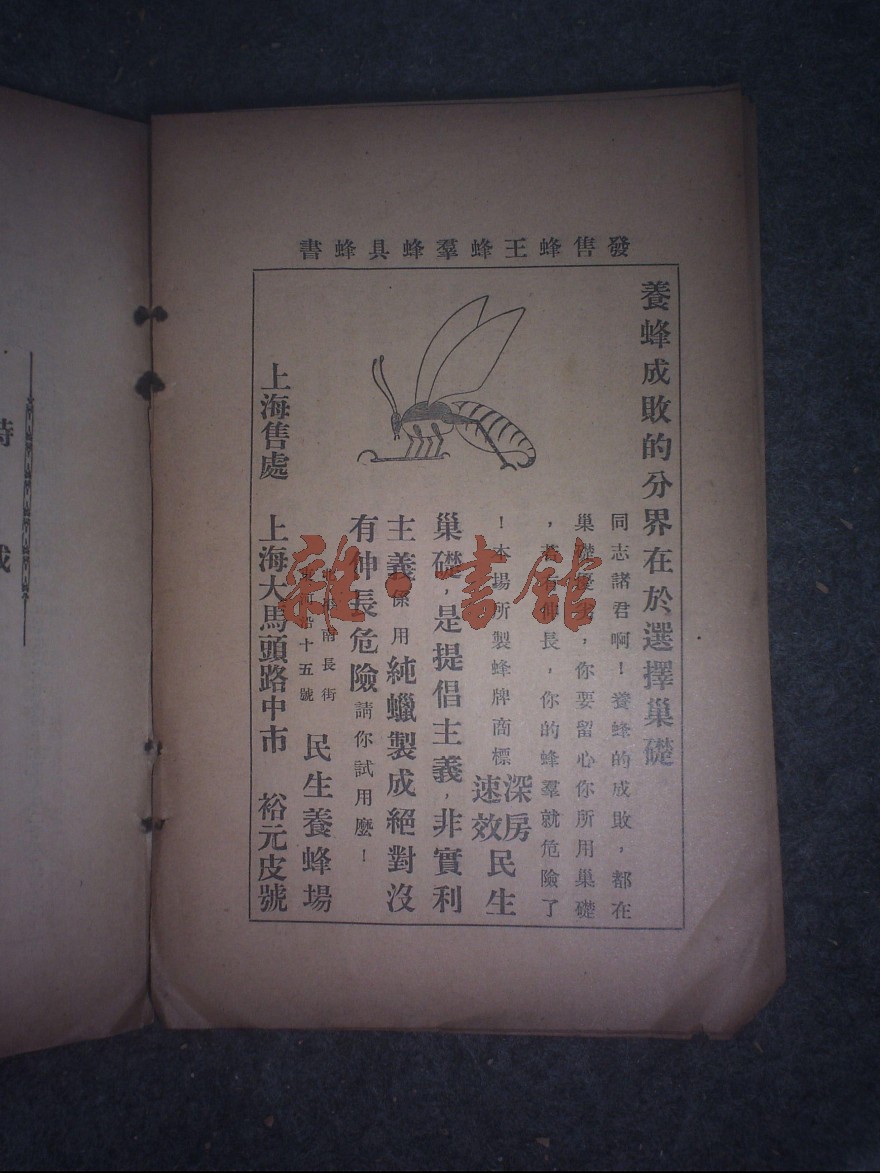 發售蜂王蜂羣蜂具蜂書
養蜂成敗的分界在於選擇巢礎
同志諸君啊！養蜂的成敗，都在
巢礎，你要留心你所用巢礎
，若伸長，你的蜂羣就危險了
！本場所製蜂牌商標深房速效民生
巢礎，是提倡主義，非實利
主義係用純蠟製成絕對沒
有伸長危險請你試用麼！
南長街
十五號
民生養蜂場
上海售處 上海大馬頭路中市 裕元皮號
雜·書館